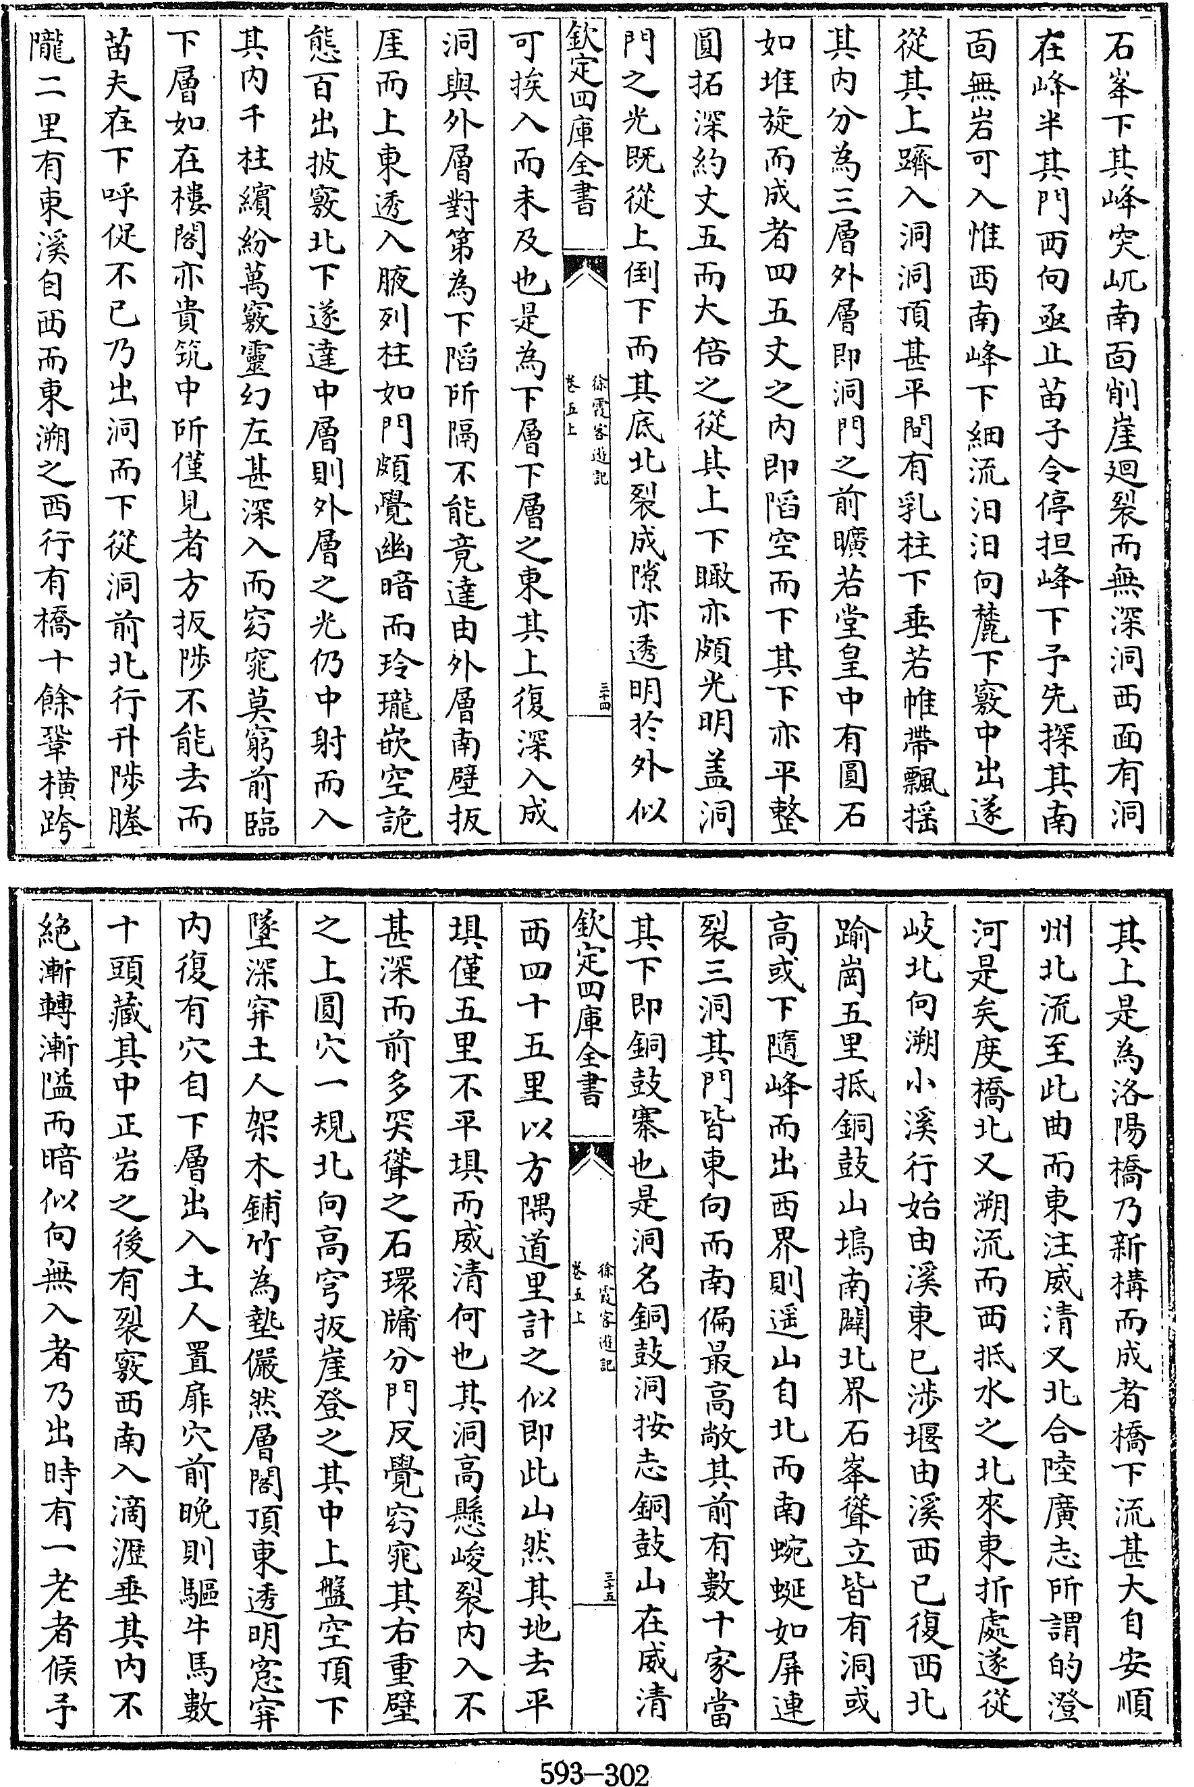 石峯下其峰突屼南面削崖廻裂而無深洞西面有洞
在峰半其門西向亟止苗子令停担峰下予先探其南
面無岩可入惟西南峰下細流汩汩向麓下竅中出遂
從其上躋入洞洞頂甚平間有乳柱下垂若帷帶飄揺
其内分為三層外層即洞門之前曠若堂皇中有圓石
如堆旋而成者四五丈之内即陷空而下其下亦平整
圓拓深約丈五而大倍之從其上下瞰亦頗光明盖洞
門之光既從上倒下而其底北裂成隙亦透明於外似
欽定四庫全書
徐霞客遊記
卷五上
三十四
可挨入而未及也是為下層下層之東其上復深入成
洞與外層對第為下陷所隔不能竟達由外層南壁扳
厓而上東透入腋列柱如門頗覺幽暗而玲瓏嵌空詭
態百出披竅北下遂達中層則外層之光仍中射而入
其内千柱繽紛萬竅靈幻左甚深入而窈窕莫窮前臨
下層如在樓閣亦貴筑中所僅見者方扳陟不能去而
苗夫在下呼促不已乃出洞而下從洞前北行升陟塍
隴二里有東溪自西而東溯之西行有橋十餘鞏横跨
其上是為洛陽橋乃新構而成者橋下流甚大自安順
州北流至此曲而東注威清又北合陸廣志所謂的澄
河是矣度橋北又溯流而西抵水之北來東折處遂從
岐北向溯小溪行始由溪東已涉堰由溪西已復西北
踰崗五里抵銅鼓山塢南闢北界石峯聳立皆有洞或
高或下隨峰而出西界則遥山自北而南蜿蜒如屏連
裂三洞其門皆東向而南偏最高敞其前有數十家當
其下即銅鼓寨也是洞名銅鼓洞按志銅鼓山在威清
欽定四庫全書
徐霞客遊記
卷五上
三十五
西四十五里以方隅道里計之似即此山然其地去平
垻僅五里不平垻而威清何也其洞高懸峻裂内入不
甚深而前多突聳之石環牖分門反覺窈窕其右重壁
之上圓穴一規北向高穹扳崖登之其中上盤空頂下
墜深穽土人架木鋪竹為墊儼然層閣頂東透明窓穽
内復有穴自下層出入土人置扉穴前晚則驅牛馬數
十頭藏其中正岩之後有裂竅西南入滴瀝垂其内不
絶漸轉漸隘而暗似向無入者乃出時有一老者候予
593-302